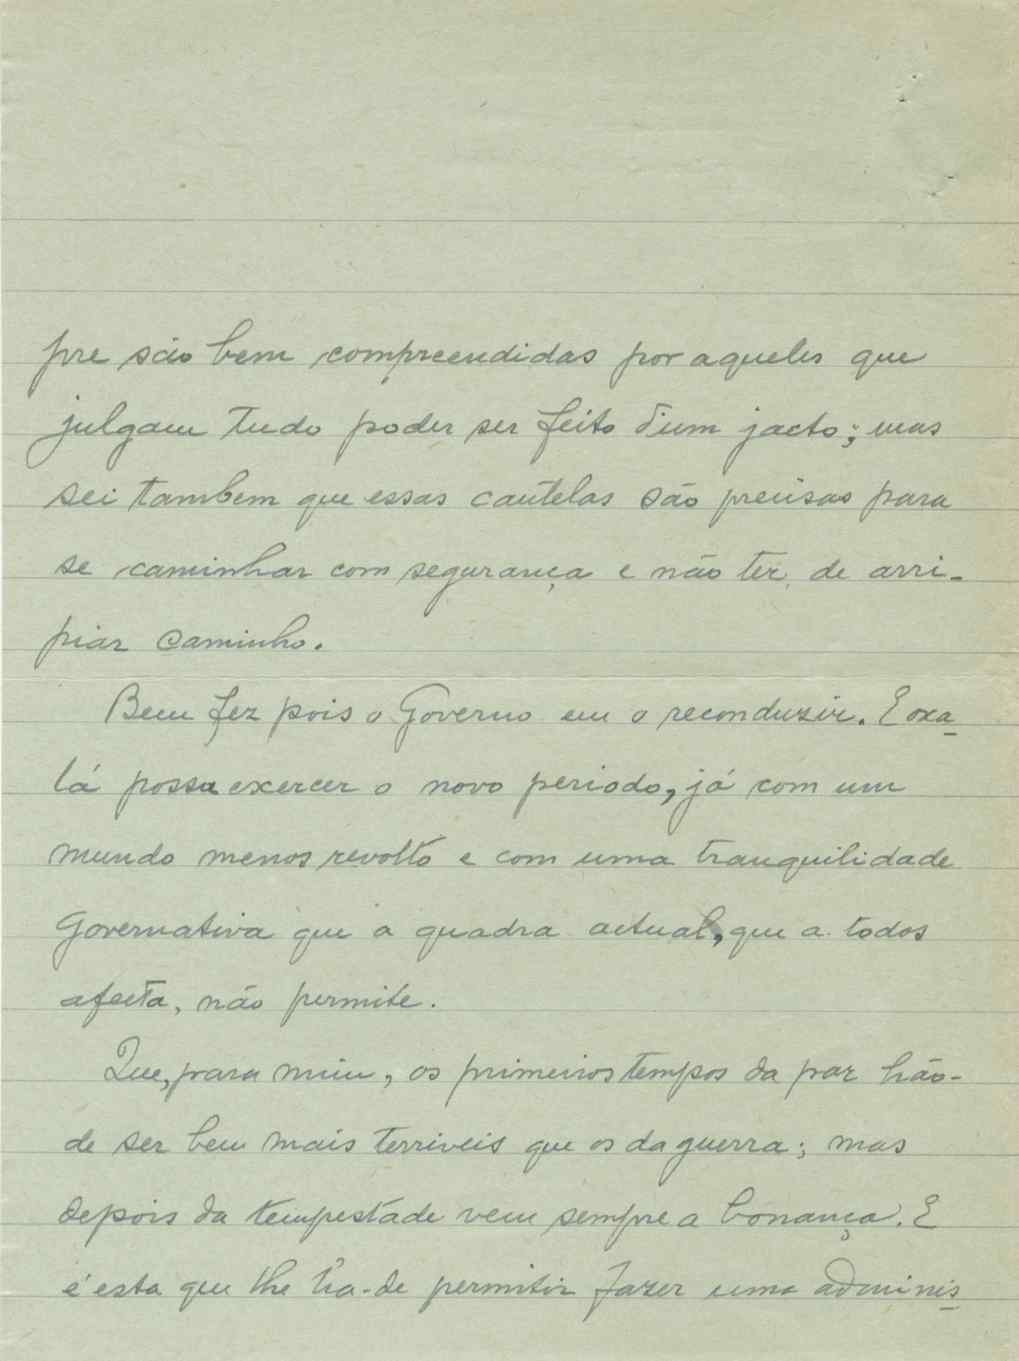 pre são bem compreendidas por aqueles que
julgam tudo poder ser feito d'um jacto; mas
sei tambem que essas cautelas são precisas para
se caminhar com segurança e não ter de arri-
piar caminho.
Bem fez pois o Governo em o reconduzir. E oxa-
lá possa exercer o novo periodo, já com um
mundo menos revolto e com uma tranquilidade
Governativa que a quadra actual, que a todos
afecta, não permite.
Que, para mim, os primeiros tempos da paz hão-
de ser bem mais terriveis que os da guerra; mas
depois da tempestade vem sempre a bonança. E
é esta que lhe há-de permitir fazer uma adminis-